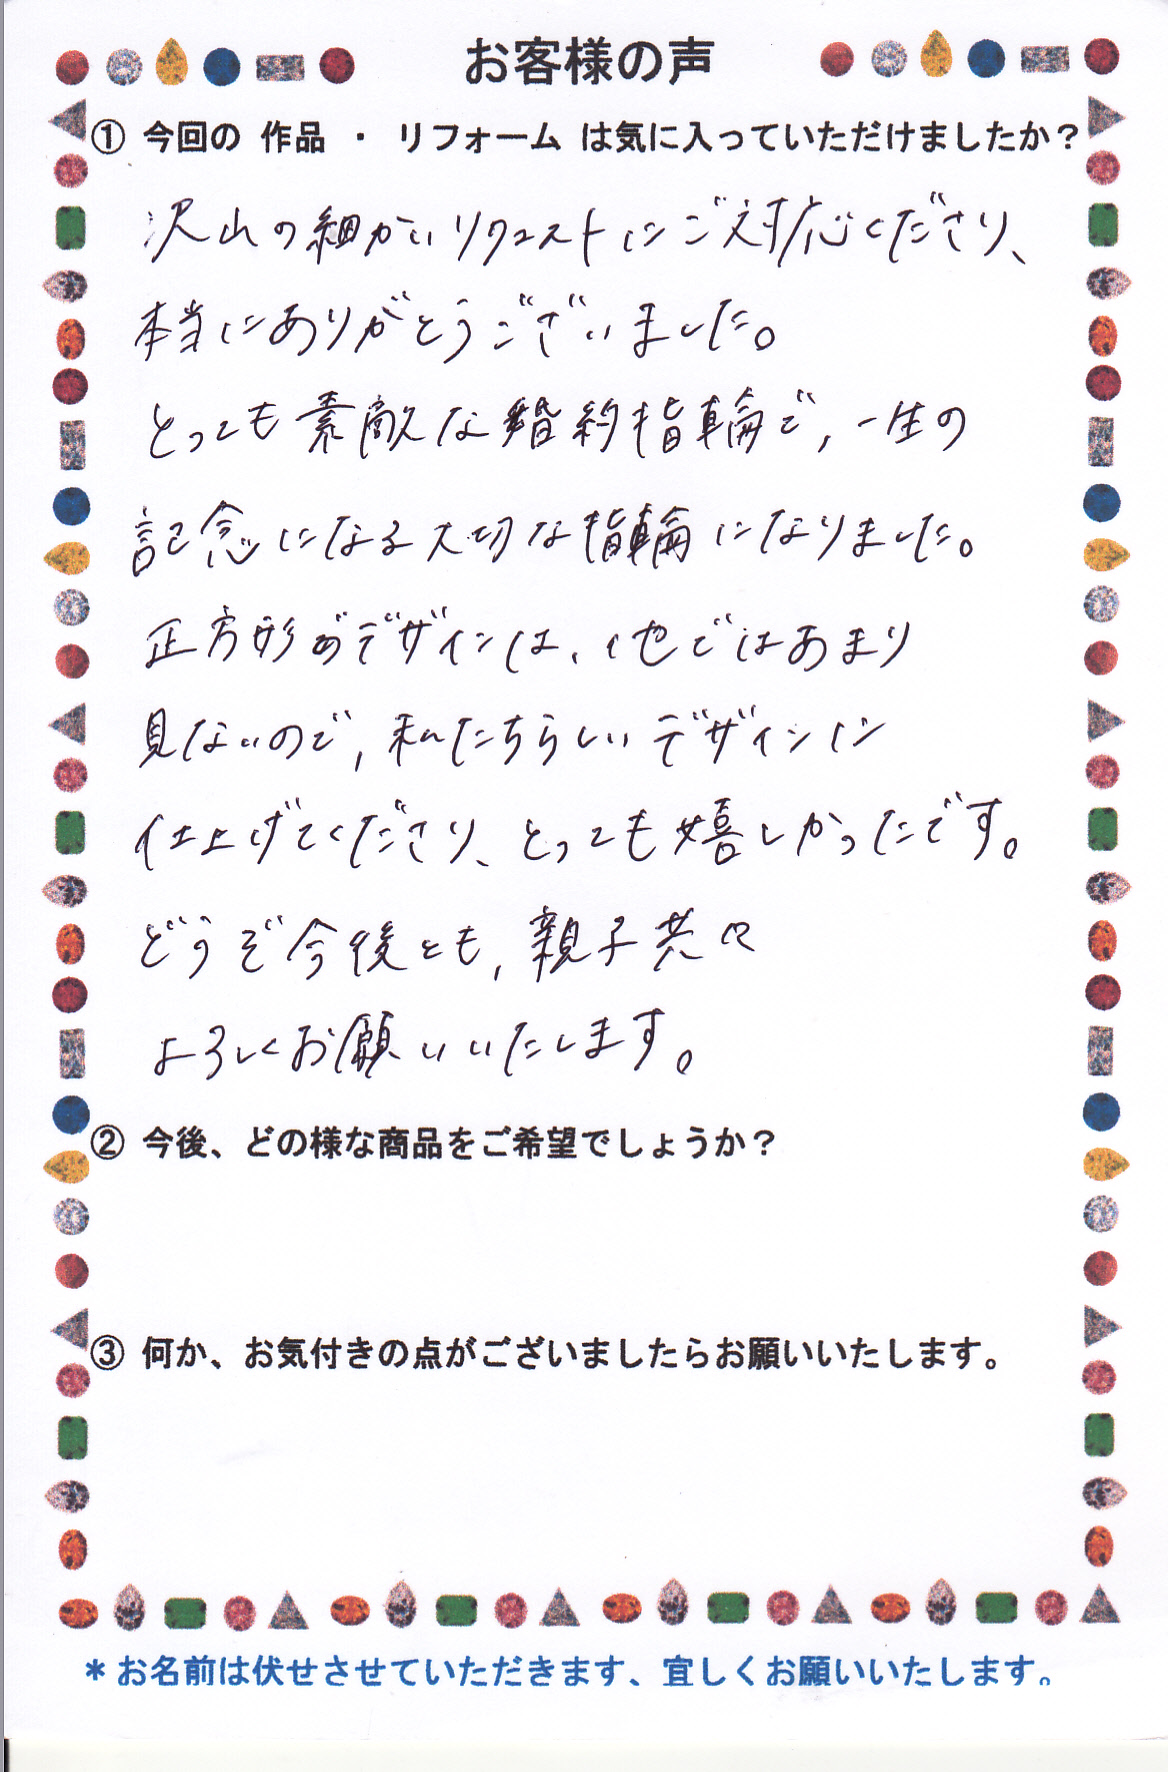 お客様の声
① 今回の 作品 ・ リフォーム は気に入っていただけましたか？
沢山の細かいリクエストにご対応くださり、
本当にありがとうございました。
とっても素敵な婚約指輪で、一生の
記念になる大切な指輪になりました。
正方形のデザインは、他ではあまり
見ないので、私たちらしいデザインに
仕上げてくださり、とっても嬉しかったです。
どうぞ今後とも、親子共々
よろしくお願いいたします。
② 今後、どの様な商品をご希望でしょうか？
③ 何か、お気付きの点がございましたらお願いいたします。
＊お名前は伏せさせていただきます、宜しくお願いいたします。